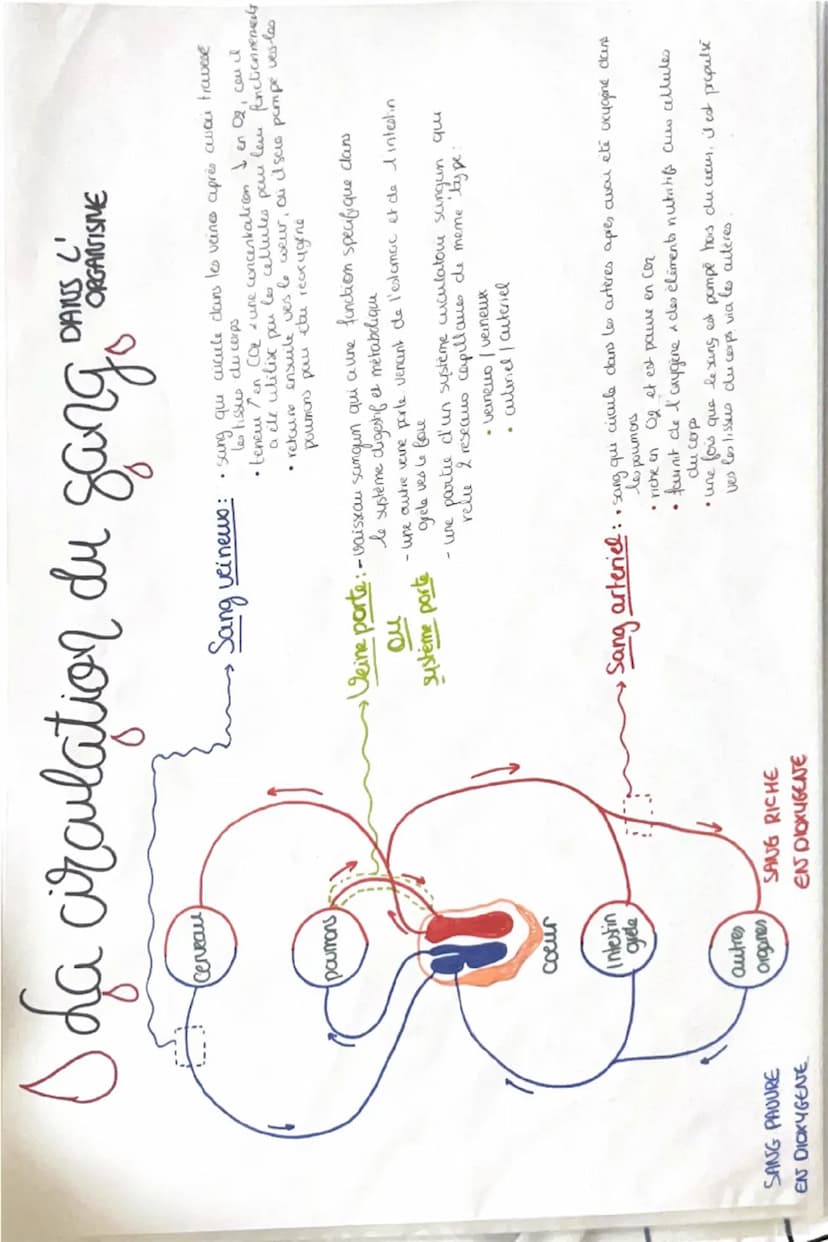 La circulation du sang DANS L'
ORGANISME
→ Sang veineux : • sang qui circule dans les veines après avoir traversé
les tissus du corps
• teneur ↑ en CO2 & une concentration ↓ en O2, car il
a été utilisé par les cellules pour leur fonctionnement
• retourne ensuite vers le coeur, où il sera pompé vers les
poumons pour être réoxygéné
→ Veine porte : - vaisseau sanguin qui a une fonction spécifique dans
le système digestif et métabolique
ou
- une autre veine porte venant de l'estomac et de l'intestin
grêle vers le foie
système porte
- une partie d'un système circulatoire sanguin qui
relie 2 réseaux capillaires de même type :
• veineux / veineux
• artériel / artériel
→ Sang artériel : • sang qui circule dans les artères après avoir été oxygéné dans
les poumons
• riche en O2 et est pauvre en CO2
• fournit de l'oxygène & des éléments nutritifs aux cellules
du corps
• une fois que le sang est pompé hors du coeur, il est propulsé
vers les tissus du corps via les artères.
cerveau
poumons
coeur
Intestin
grêle
autres
organes
SANG PAUVRE
EN DIOXYGENE
SANG RICHE
EN DIOXYGENE